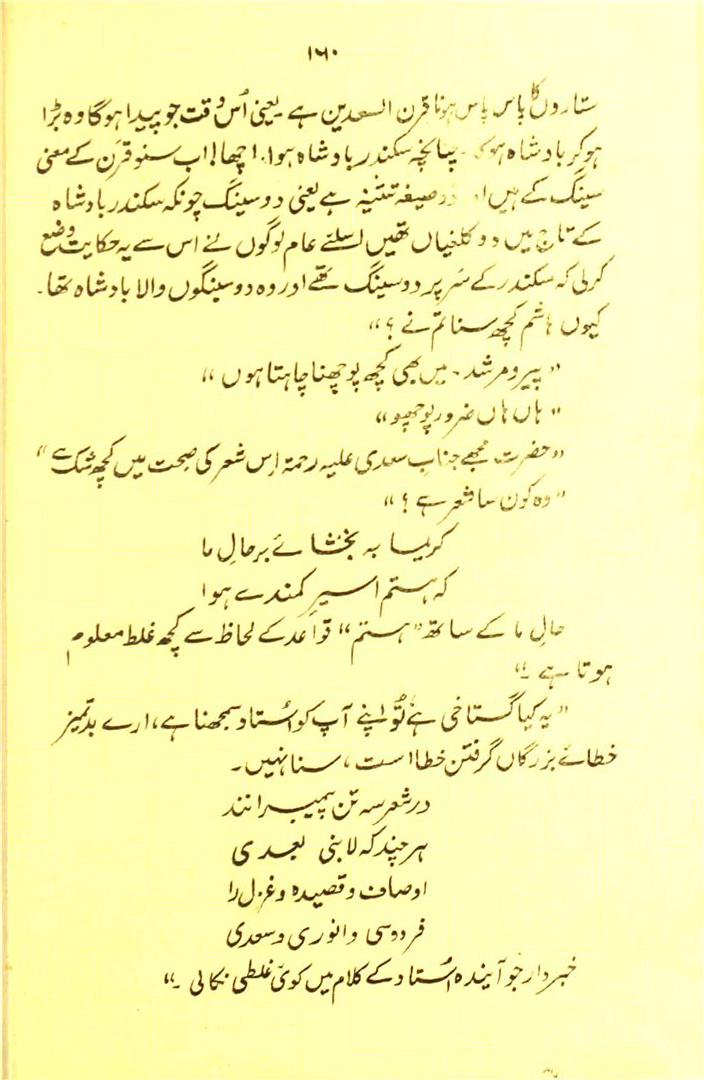 ۱۶۰
ستاروں کا پاس پاس ہونا قرن السعدین ہے یعنی اُس وقت جو پیدا ہوگا وہ بڑا
ہوکر بادشاہ ہوگا۔ چنانچہ سکندر بادشاہ ہوا۔ اچھا! اب سنو قرن کے معنی
سینگ کے ہیں اور صیغہ تثنیہ ہے یعنی دو سینگ چونکہ سکندر بادشاہ
کے تاج میں دو کلغیاں تھیں اسلئے عام لوگوں نے اس سے یہ حکایت وضع
کرلی کہ سکندر کے سر پر دو سینگ تھے اور وہ دو سینگوں والا بادشاہ تھا۔
کیوں ہاشم کچھ سنا تم نے؟"
"پیر و مرشد۔ میں بھی کچھ پوچھنا چاہتا ہوں"
"ہاں ہاں ضرور پوچھو"
"حضرت مجھے جناب سعدی علیہ رحمۃ اِس شعر کی صحت میں کچھ شک ہے"
"وہ کون سا شعر ہے؟"
کریما بہ بخشائے بر حالِ ما
کہ ہستم اسیرِ کمندے ہوا
حالِ ما کے ساتھ "ہستم" قواعد کے لحاظ سے کچھ غلط معلوم
ہوتا ہے۔"
"یہ کیا گستاخی ہے تُو اپنے آپ کو اُستاد سمجھتا ہے، ارے بدتمیز
خطائے بزرگاں گرفتن خطا است، سنا نہیں۔
در شعر سہ تن پیمبرانند
ہر چند کہ لا نبی بعدی
اوصاف و قصیدہ و غزل را
فردوسی و انوری و سعدی
خبردار جو آیندہ اُستاد کے کلام میں کوئی غلطی نکالی۔"